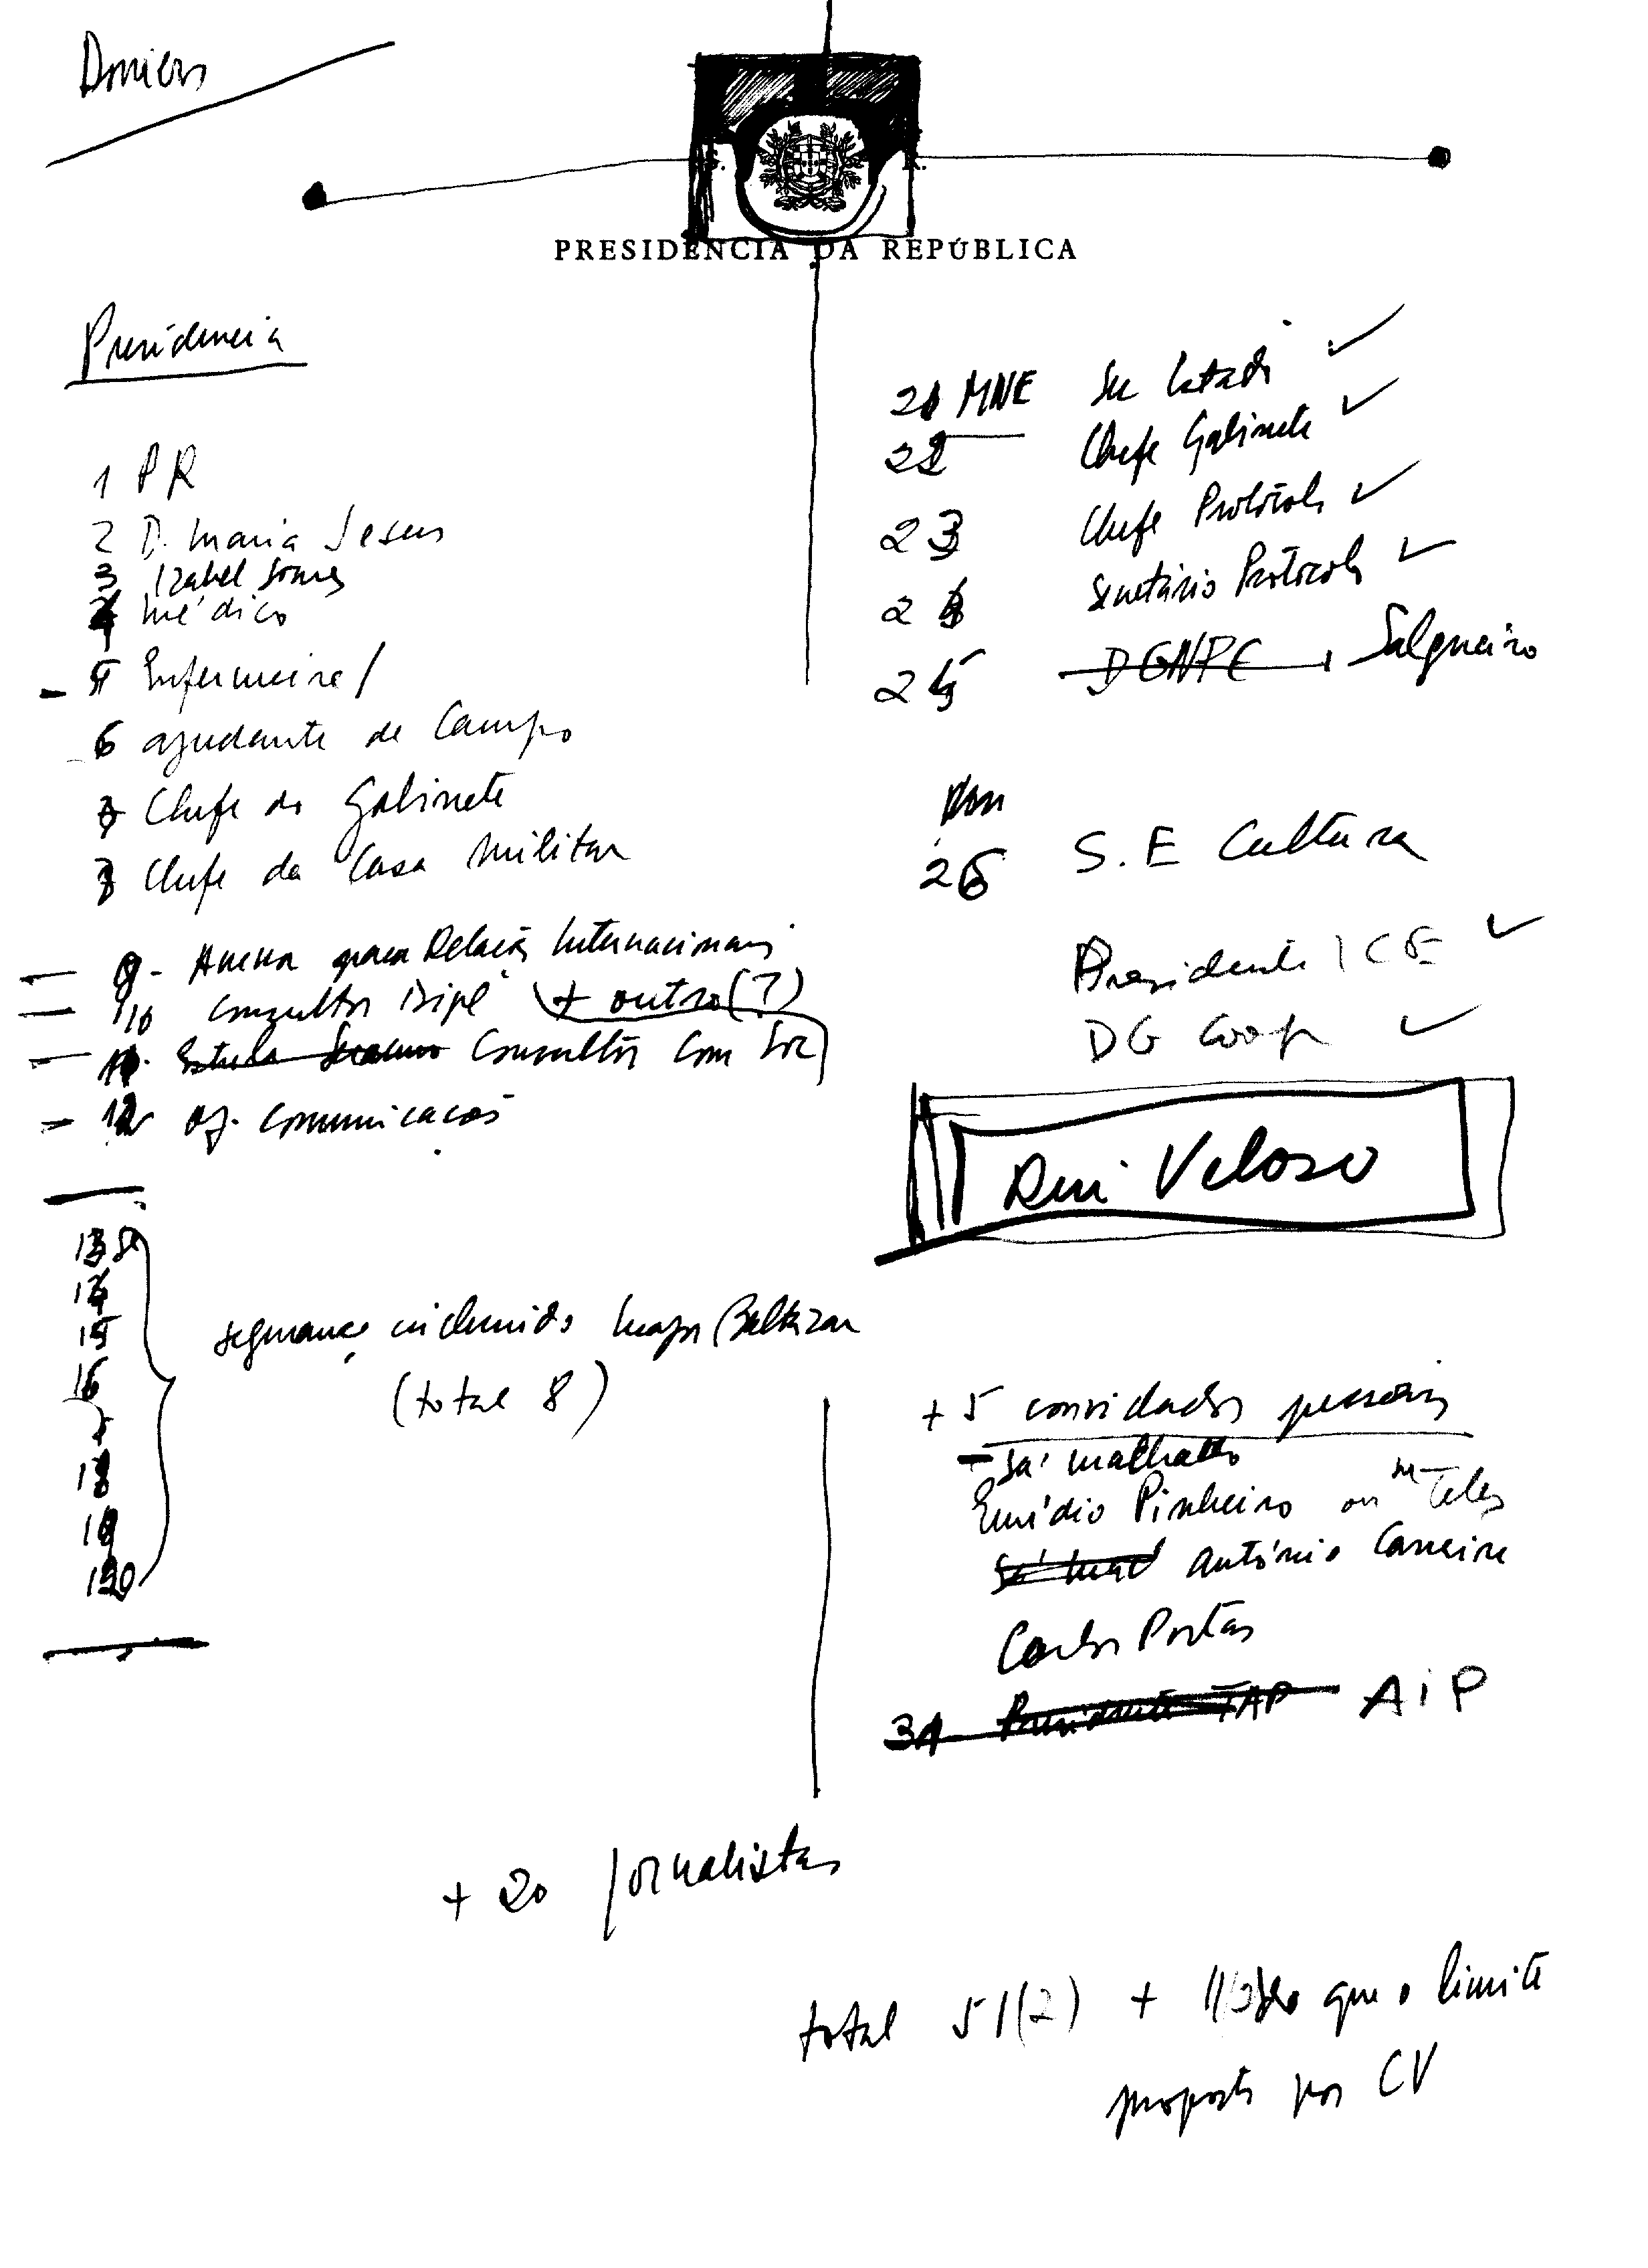 Dossiers
PRESIDÊNCIA DA REPÚBLICA
Presidência
1 PR
2 D. Maria Jesus
3 Izabel Soares
4 Médico
5 Enfermeira /
6 ajudante de Campo
7 Chefe do Gabinete
8 Chefe da Casa Militar
9- para Relações Internacionais
10 Consultor Dipl + outro (?)
11. Consultor Com Soc
12 of. comunicações
13 8
14
15
16
18
19
20
segurança incluindo Major Baltazar
(total 8)
21 MNE Sec Estado
22 Chefe Gabinete
23 Chefe Protocolo
24 Secretário Protocolo
25 DGNPE Salgueiro
26 S.E Cultura
Presidente ICE
DG Coop
Rui Veloso
+ 5 convidados pessoais
- Sá Machado
Emídio Pinheiro ou Teles
António Carneiro
Carlos Portas
31 Presidente TAP AIP
+ 20 jornalistas
total 51(2) + que o limite
proposto por CV